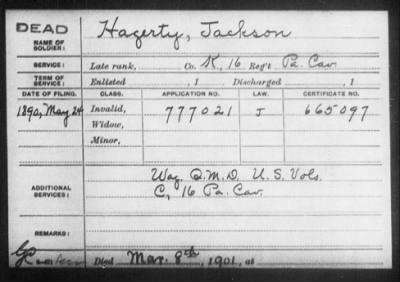 DEAD
NAME OF SOLDIER: Hagerty, Jackson
SERVICE: Late rank, Co. K, 16 Reg't Pa. Cav.
TERM OF SERVICE: Enlisted , 1 Discharged , 1
DATE OF FILING. CLASS. APPLICATION NO. LAW. CERTIFICATE NO.
1890, May 24 Invalid, 777021 J 665097
Widow,
Minor,
ADDITIONAL SERVICES: Wag. Q.M.D. U.S. Vols.
C, 16 Pa. Cav.
REMARKS:
Died Mar. 8th, 1901, at